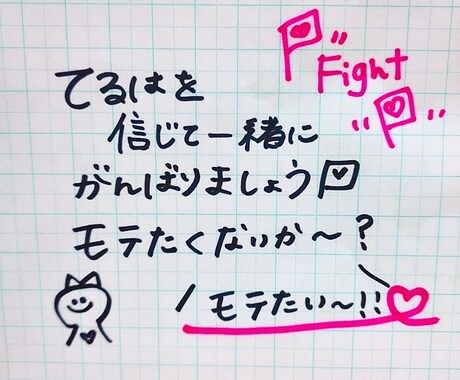 Fight
てるはを
信じて一緒に
がんばりましょう
モテたくないか〜？
モテたい〜!!